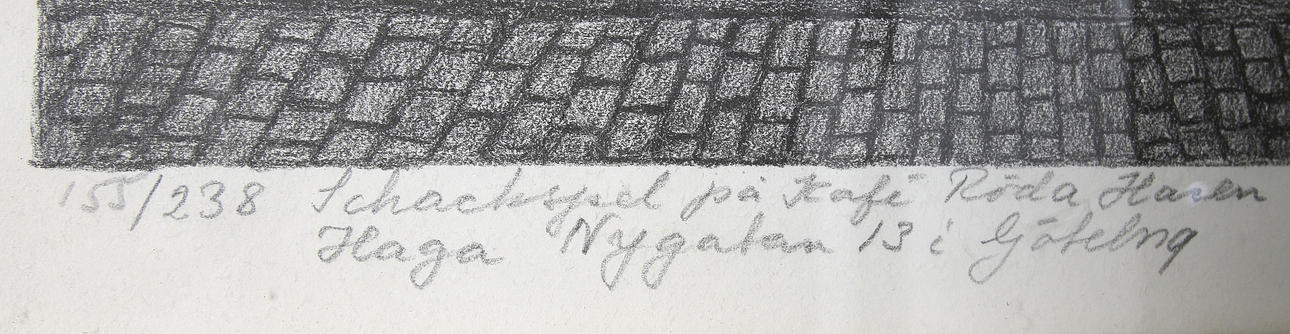 155/238 Schackspel på Kafé Röda Hanen
Haga Nygatan 13 i Götebrg